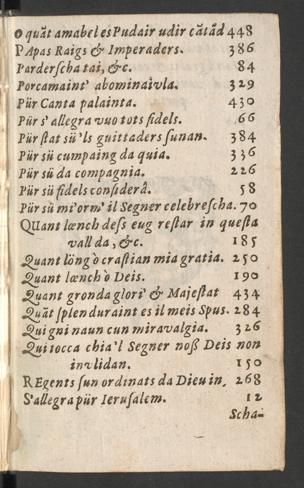 o quãt amabel es Pudair udir cãtãd 448
PApas Raigs & Imperaders. 386
Parderscha tai, &c. 84
Porcamaint' abominaivla. 329
Pür Canta palainta. 430
Pür s' allegra vuo tots fidels. 66
Pür stat sü 'ls guittaders sunan. 384
Pür sü cumpaing da quia. 336
Pür sü da compagnia. 226
Pür sü fidels considerâ. 58
Pür sü mi'orm' il Segner celebrescha. 70
QUant lœnch dess eug restar in questa
vall da, &c. 185
Quant löng ò crastian mia gratia. 250
Quant lœnch ò Deis. 190
Quant gronda glori' & Majestat 434
Quãt splenduraint es il meis Spus. 284
Qui gni naun cun miravalgia. 326
Qui tocca chia'l Segner noß Deis non
invlidan. 150
REgents sun ordinats da Dieu in, 268
S'allegra pür Ierusalem. 12
Scha-